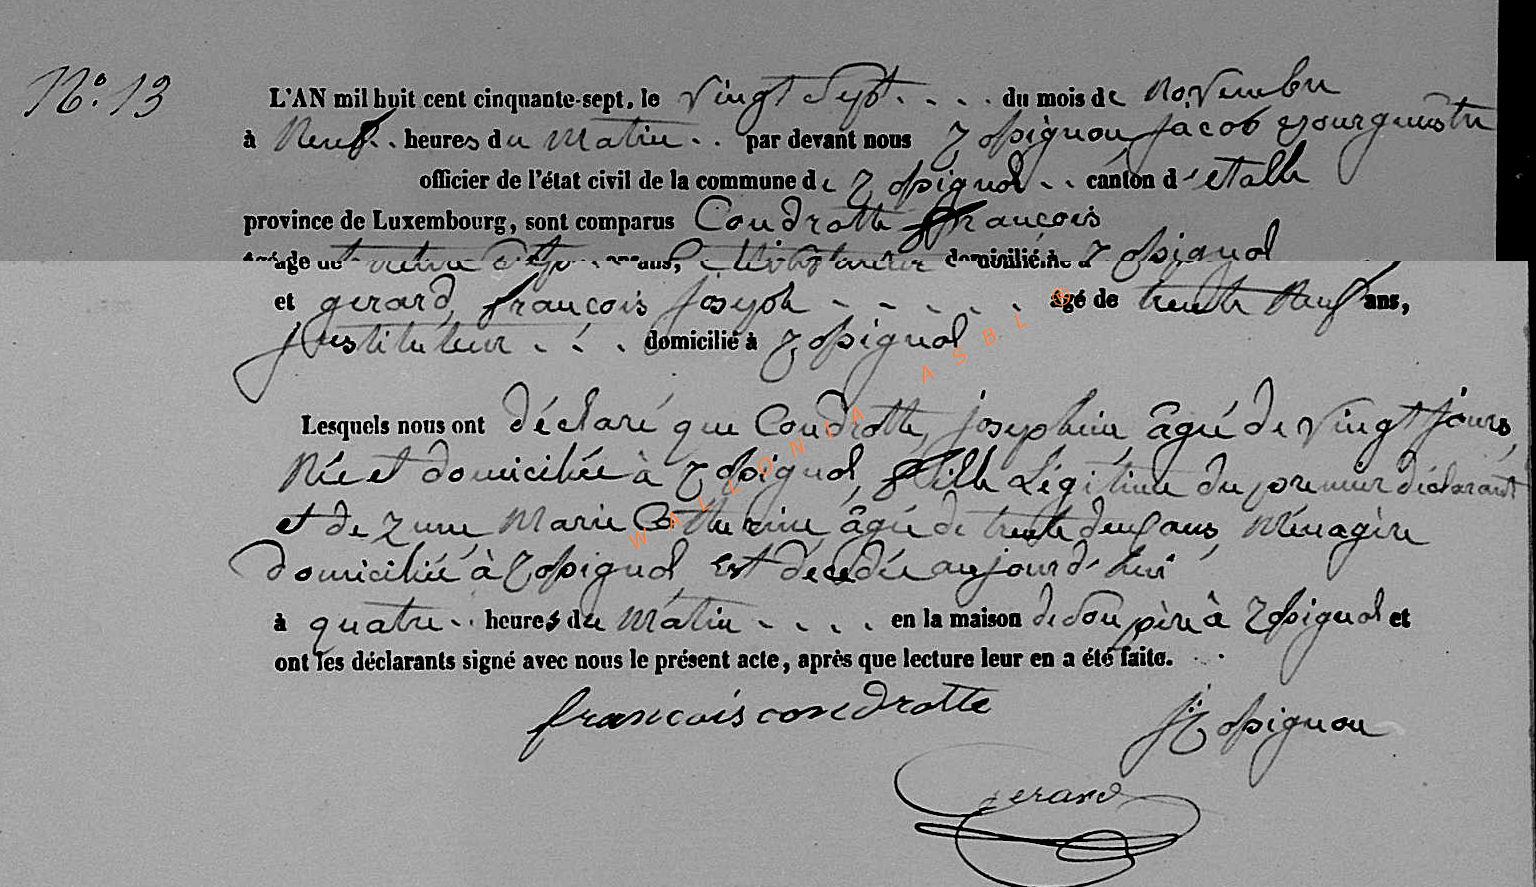 N° 13
L'AN mil huit cent cinquante-sept, le vingt Sept . . . . du mois de Novembre
à Neuf . . heures du Matin . . par devant nous Jacob Bourgmestre
officier de l'état civil de la commune de . . canton d'étalle
province de Luxembourg, sont comparus Coudrotte françois
domicilié à
et gerard, françois joseph - - - - . agé de trente Neuf ans,
Instituteur . . . domicilié à
Lesquels nous ont déclaré que Coudrotte, josephine âgée de vingt jours,
Née et domiciliée à fille Légitime du premier déclarant
et de Marie Catherine âgée de trente ans Ménagère
domiciliée à Est décedée aujourd'hui
à quatre . . heures du Matin - . . . en la maison de son père à et
ont les déclarants signé avec nous le présent acte, après que lecture leur en a été faite.
françois coudrotte
Gerard
WALLONIA ASBL